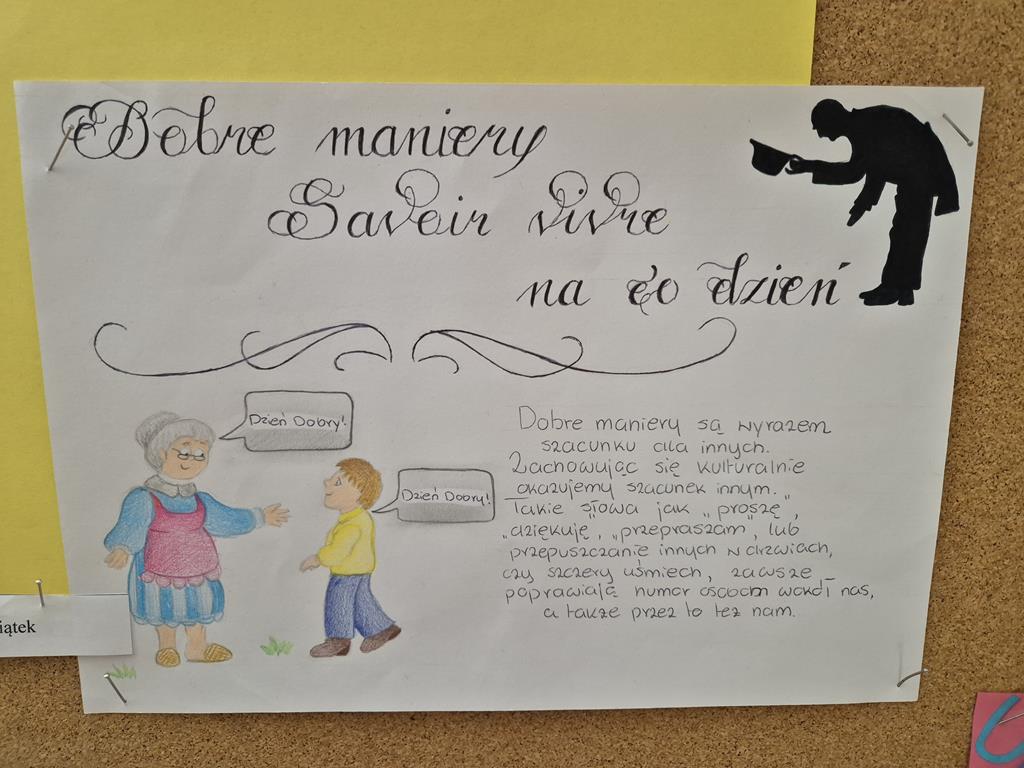 Dobre maniery
Savoir vivre
na co dzień
Dzień Dobry!
Dzień Dobry!
Dobre maniery są wyrazem
szacunku dla innych.
Zachowując się kulturalnie
okazujemy szacunek innym.
Takie słowa jak „proszę",
„dziękuję", „przepraszam", lub
przepuszczanie innych w drzwiach,
czy szczery uśmiech, zawsze
poprawiają humor osobom wokół nas,
a także przez to też nam.
iątek